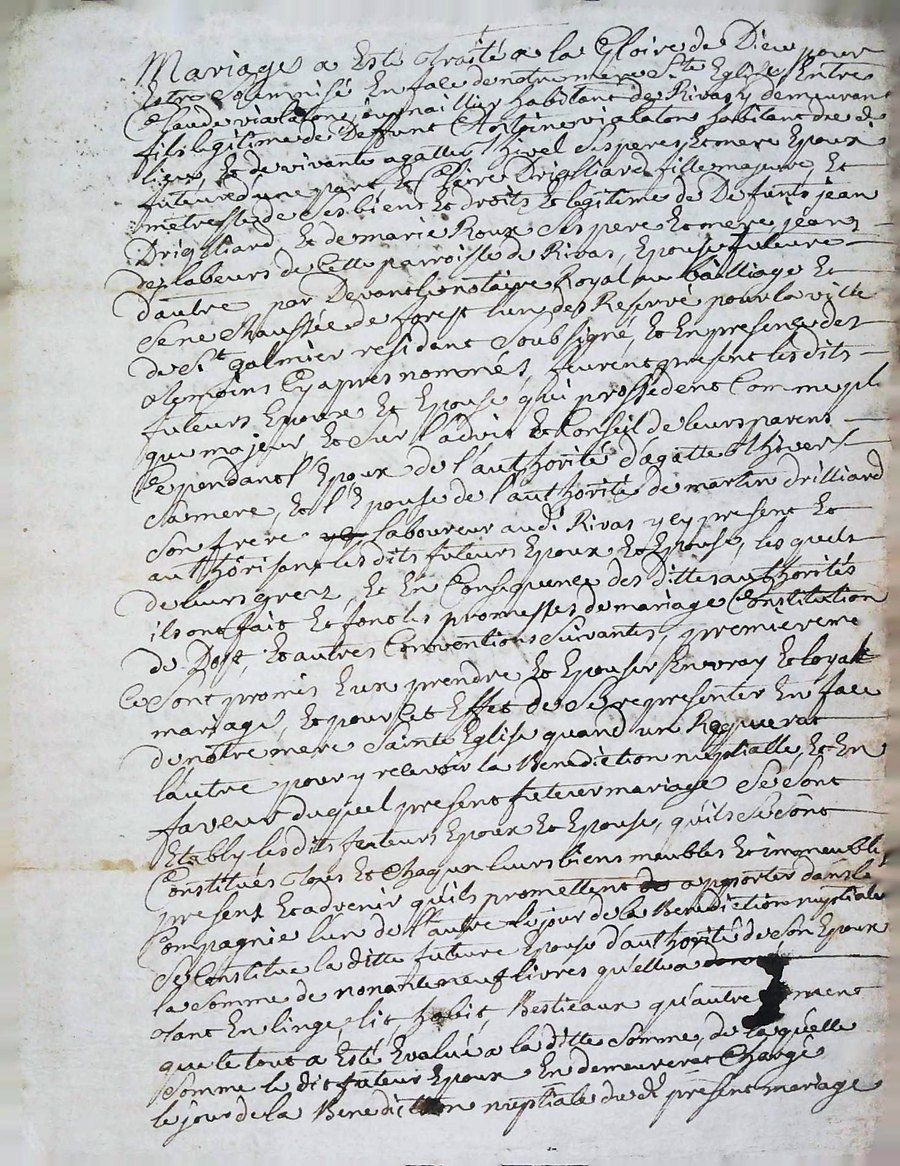 Mariage a Esté traité a la Gloire de Dieu pour
Estre solemnisé En face de notre mere Ste Eglise, Entres
Claude vialaton, journaillier habitant de Rivas y demeurant
fils legitime de Defunt Antoine vialaton habitant du dt
lieu, Et de vivante agatte Thivel ses pere et mere Epoux
futeur d'une part, Et Claire Drigliard fille majeure, Et
metresse de ses biens Et droits Et legitime de Defunts jean
Drigilliard, Et de marie Roux ses pere Et mere, jeans
des labeurs de Cette parroisse de Rivas, Epouse future
d'autre par Devant le notaire Royal au bailliage Et
Senechaussée de forest l'un des Reservé pour la ville
de St galmier residant soubsigné, Et En presence des
temoins Cy apres nommés, furent present lesdits
futeurs Epoux Et Epouse qui procedent Comme
que majeur, Et sur l'advit Et Conseil de leurs parens
Cependant l'Epoux de l'authorité d'agatte Thivel
sa mere, Et l'Epouse de l'authorité de martin drilliard
son frere laboureur au dt Rivas y cy present Et
authorisant lesdits futeurs Epoux Et Epouse, les quels
de leurs grez, Et En Consequence des dittes authorités
ils ont fait Et font les promesses de mariage Constitution
de Dost, Et autres Conventions suivantes, premiereme
Ce sont promis Eux prendre Et Epouser En vray Et loyal
mariage, Et pour Cet Effet de se representer En face
de notre mere sainte Eglise quand un Requerat
l'autre pour y recevoir la Benediction nuptialle, Et En
faveur duquel present futeur mariage se sont
Etably lesdits futeurs Epoux Et Epouse, qu'ils se sont
Constitués tous Et Chaqun leurs biens meubles Et immeubles
present Et advenir qu'ils promettent apporter dans la
Compagnie l'un de l'autre le jour de la Benediction nuptiale
se Constitue la ditte future Epouse d'authorité de son Epoux
la somme de nonante neuf livres qu'elle a
tant En linge, lit, habit, Bestieaux qu'autrement
que le tout a Esté Evalué a la ditte somme, de laquelle
somme le dit futeur Epoux En demeurerat Chargé
le jour de la Benediction nuptiale du dt present mariage